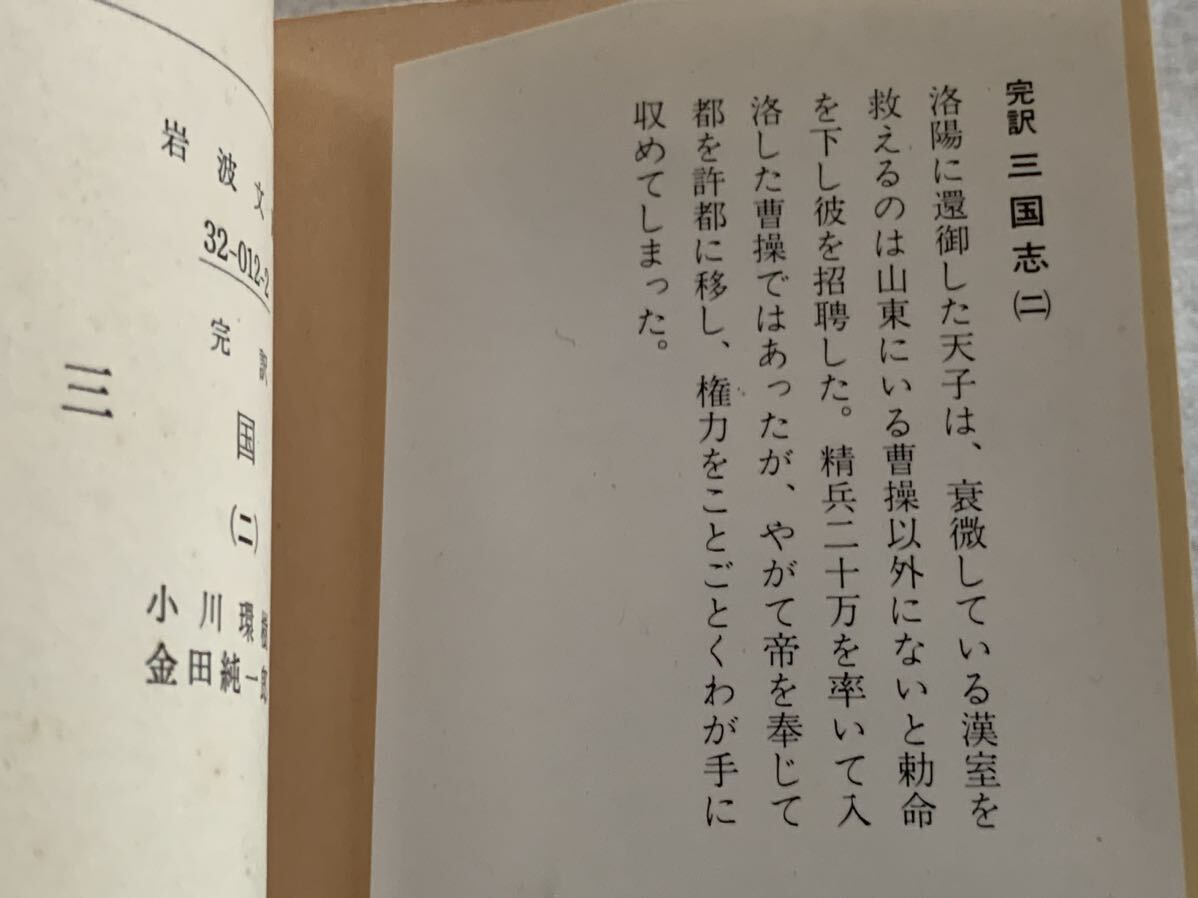 完訳 三国志 (二)
洛陽に還御した天子は、衰微している漢室を
救えるのは山東にいる曹操以外にないと勅命
を下し彼を招聘した。精兵二十万を率いて入
洛した曹操ではあったが、やがて帝を奉じて
都を許都に移し、権力をことごとくわが手に
収めてしまった。
岩波文
32-012-2
完訳
三国
(二)
小川環樹
金田純一郎